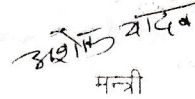 अशोक यादव
मन्त्री